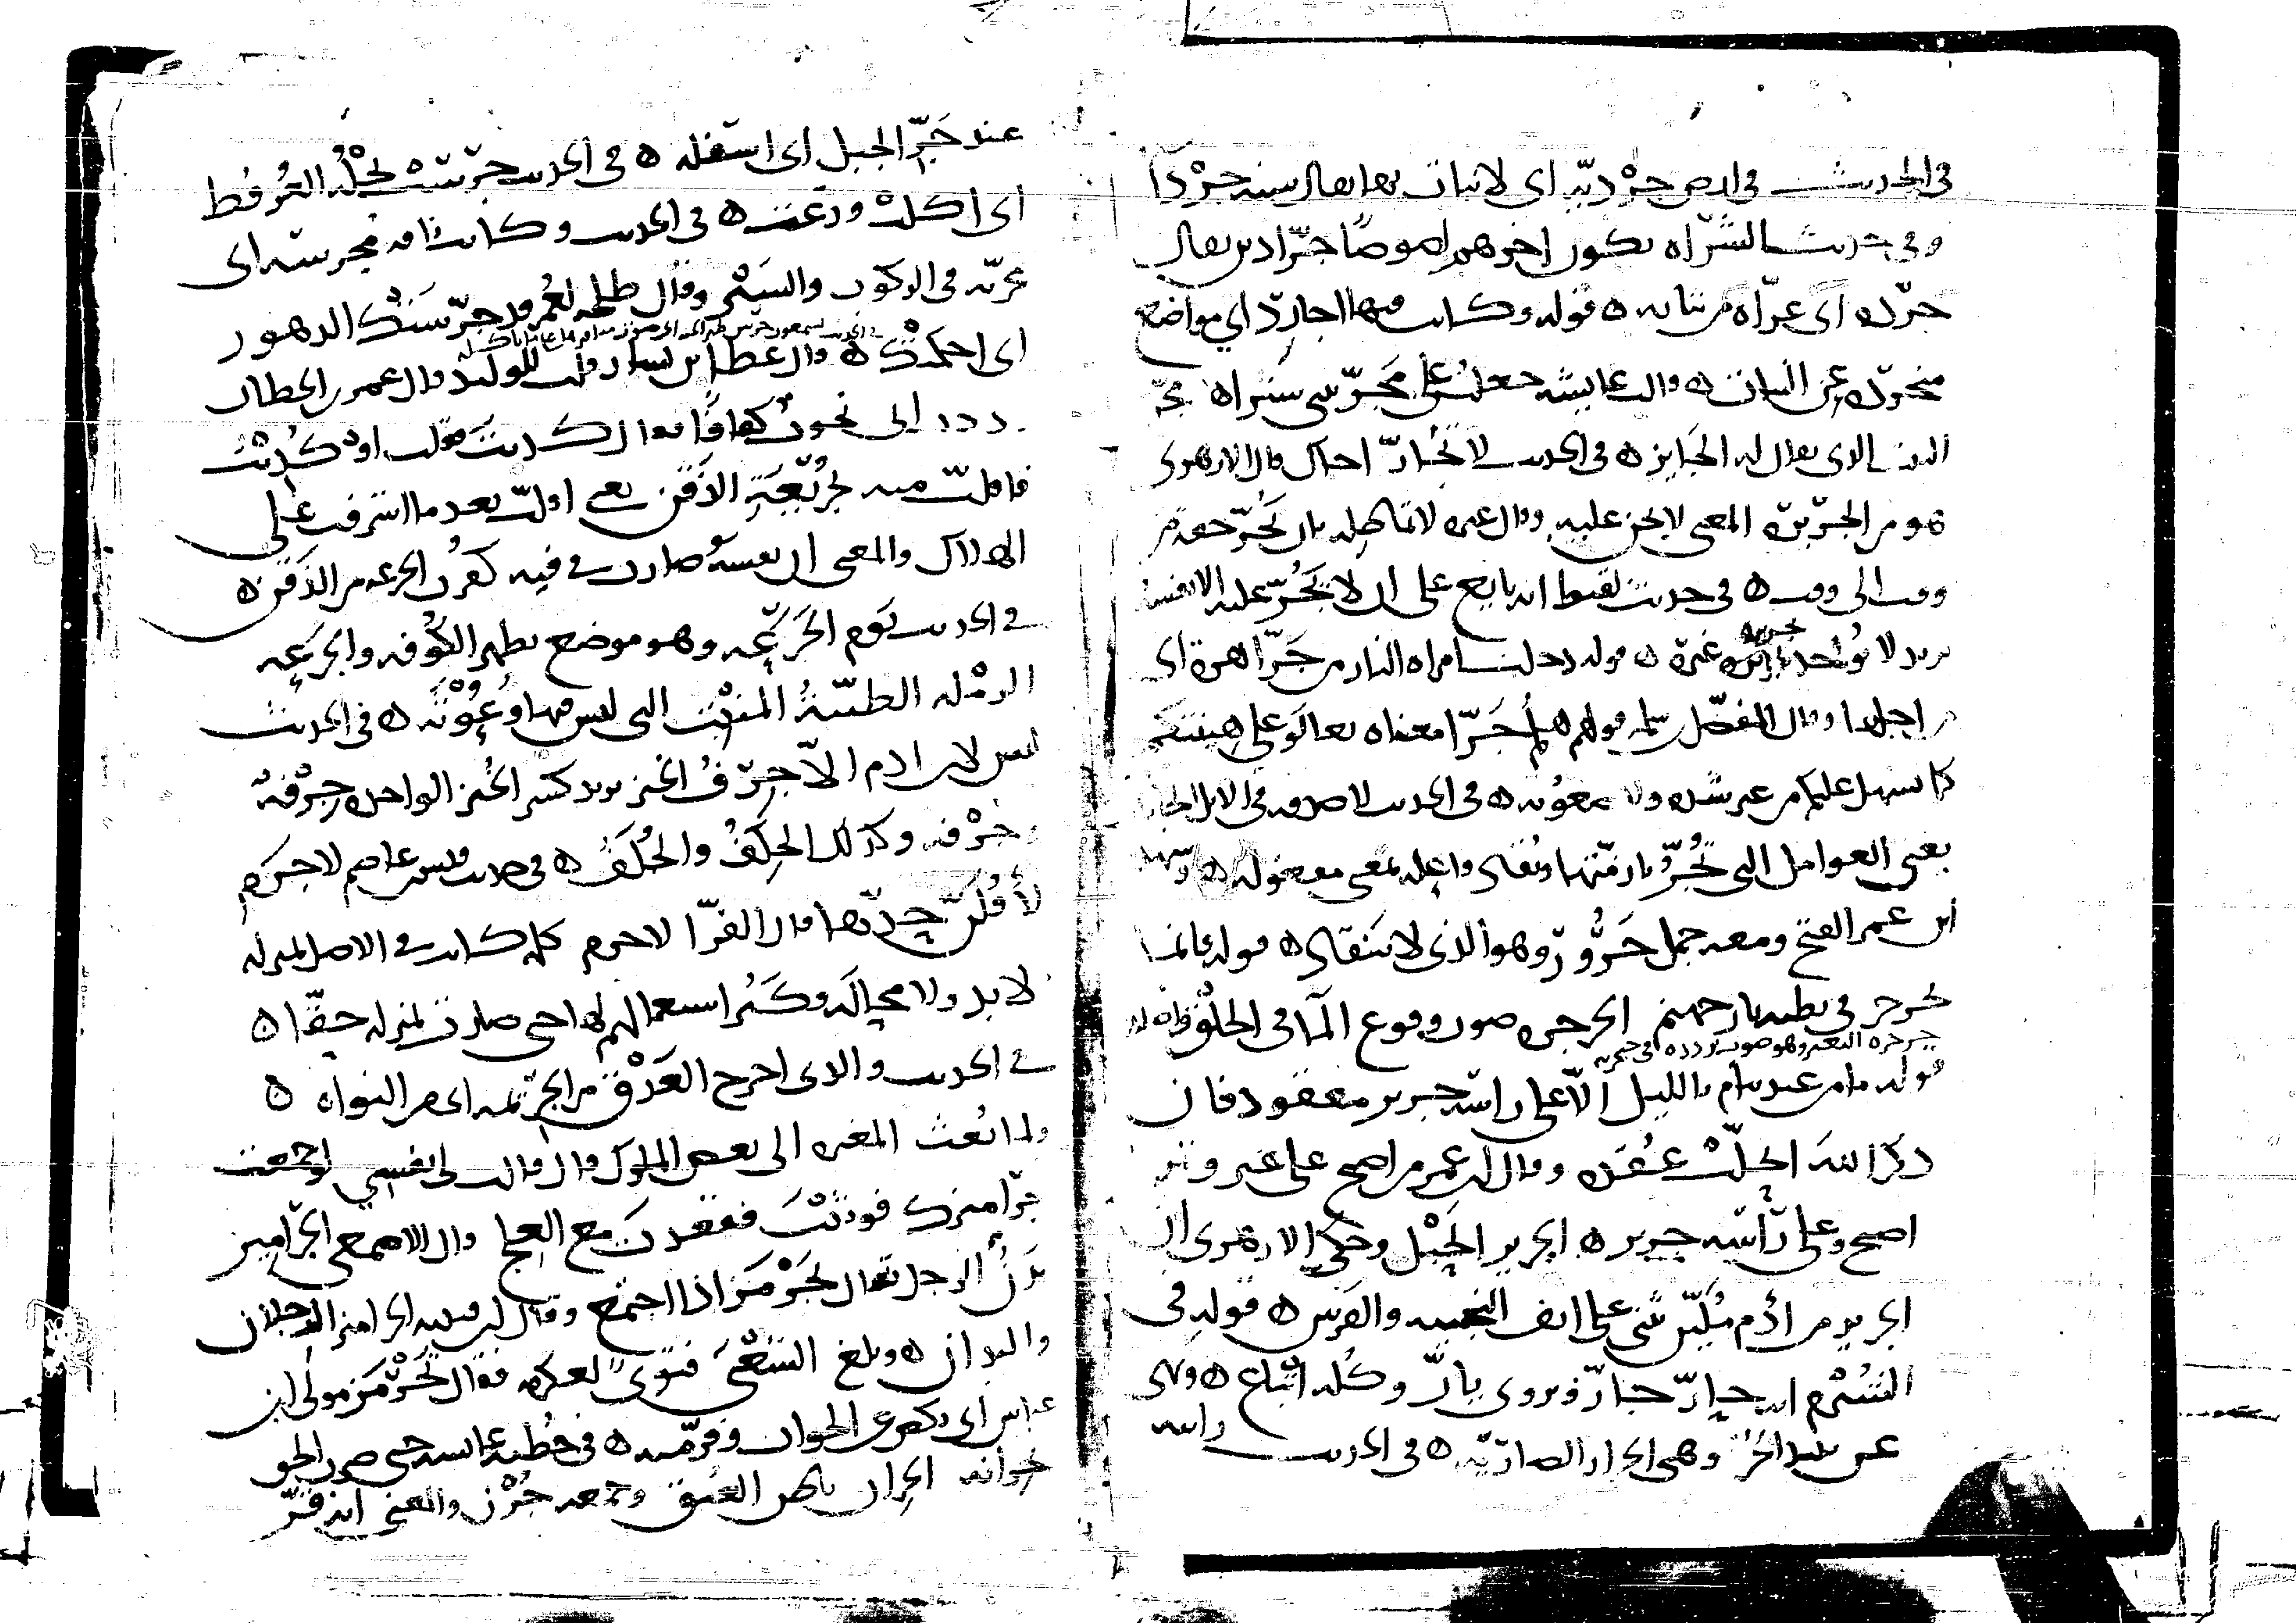 في الحديث في ارض جردية اي لا نبات بها يقال سنة جردا
وفي حديث الشراه يكون اخرهم لصوصا جرادين يقال
جرده اي عراه من ثيابه ه قوله وكانت فيها اجارد اي مواضع
متجرده عن النبات ه قالت عايشه جعلت على مجر بيتي سترا ه المجر
الذي يقال له الجايز ه في الحديث لا تجار اخاك قال الازهري
هو من الجريره المعنى لا يجن عليه وقال غيره لا تماطله بان تجر حقه من
وقت الى وقت ه في حديث لقيط انه بايع على ان لا يجر عليه الا نفسه
يريد لا يؤاخذ بجريرة غيره ه قوله دخلت امراه النار من جرا هرة اي
من اجلها وقال المفضل بن سلمه قولهم هلم جرا معناه تعالوا على هينتكم
كما يسهل عليكم من غير شده ولا صعوبه ه في الحديث لا صدقه في الابل الجاره
يعني العوامل التي تجر بازمتها وتقاد فاعله بمعنى مفعوله ه وشهد
ابن عمر الفتح ومعه جمل جرور وهو الذي لا ينقاد ه قوله فانما
يجرجر في بطنه نار جهنم الجرجره صوت وقوع الما في الحلق
جرجره البعير وهو صوت يردده في حنجرته
قوله ما من عبد ينام بالليل الا على راسه جرير معقود فان
ذكر الله انحلت عقده وقال ابن عمر من اصبح على غير وتر
اصبح وعلى راسه جرير ه الجرير الحبل وحكى الازهري ان
الجرير من ادم ملين يثنى على انف النجيبه والفرس ه قوله في
الشبرم انه حار جار ويروى يار وكله اتباع ه ونهى
عن نبيذ الجر وهي الجرار الضاريه ه في الحديث رايته
عند جر الجبل اي اسفله ه في الحديث جرست نحله العرفط
اي اكلت ورعت ه في الحديث وكانت ناقه مجرسه اي
مجربه في الركوب والسير وقال طلحه لعمر قد جرستك الدهور
اي احكمتك ه قال عطا بن يسار قلت للوليد قال عمر بن الخطاب
وددت اني نجوت كفافا فقال كذبت فقلت او كذبت
فافلت منه بجريعة الذقن يعني افلت بعد ما اشرفت على
الهلاك والمعنى ان نفسه صارت في فيه كقرب الجرعه من الذقن ه
في الحديث يوم الجرعه وهو موضع بظهر الكوفه والجرعه
الرمله الطيبة المنبت التي ليس فيها وعوثه ه في الحديث
ليس لابن ادم الا جرف الخبز يريد كسر الخبز الواحده جرفة
جرفه وكذلك الجلف والجلف ه في حديث قيس بن عاصم لا جرم
لافلن حدها قال الفرا لا جرم كلمه كانت في الاصل بمنزله
لا بد ولا محاله وكثر استعمالهم لها حتى صارت بمنزله حقا ه
في الحديث والذي اخرج العذق من الجريمه اي من النواه ه
ولما بعث المغيره الى بعض الملوك قال قالت لي نفسي لو جمعت
جراميزك فوثبت فقعدت مع العلج قال الاصمعي الجراميز
بدن الرجل يقال تجرمز اذا اجتمع وقال ابن قتيبه الجراميز الرجلان
واليدان ه وبلغ الشعبي فتوى لعكرمه فقال جرمز مولى ابن
عباس اي نكص عن الجواب وفر منه ه في خطبه عايشه حتى ضرب الحق
بجرانه الجران باطن العنق وجمعه جرن والمعنى انه قر